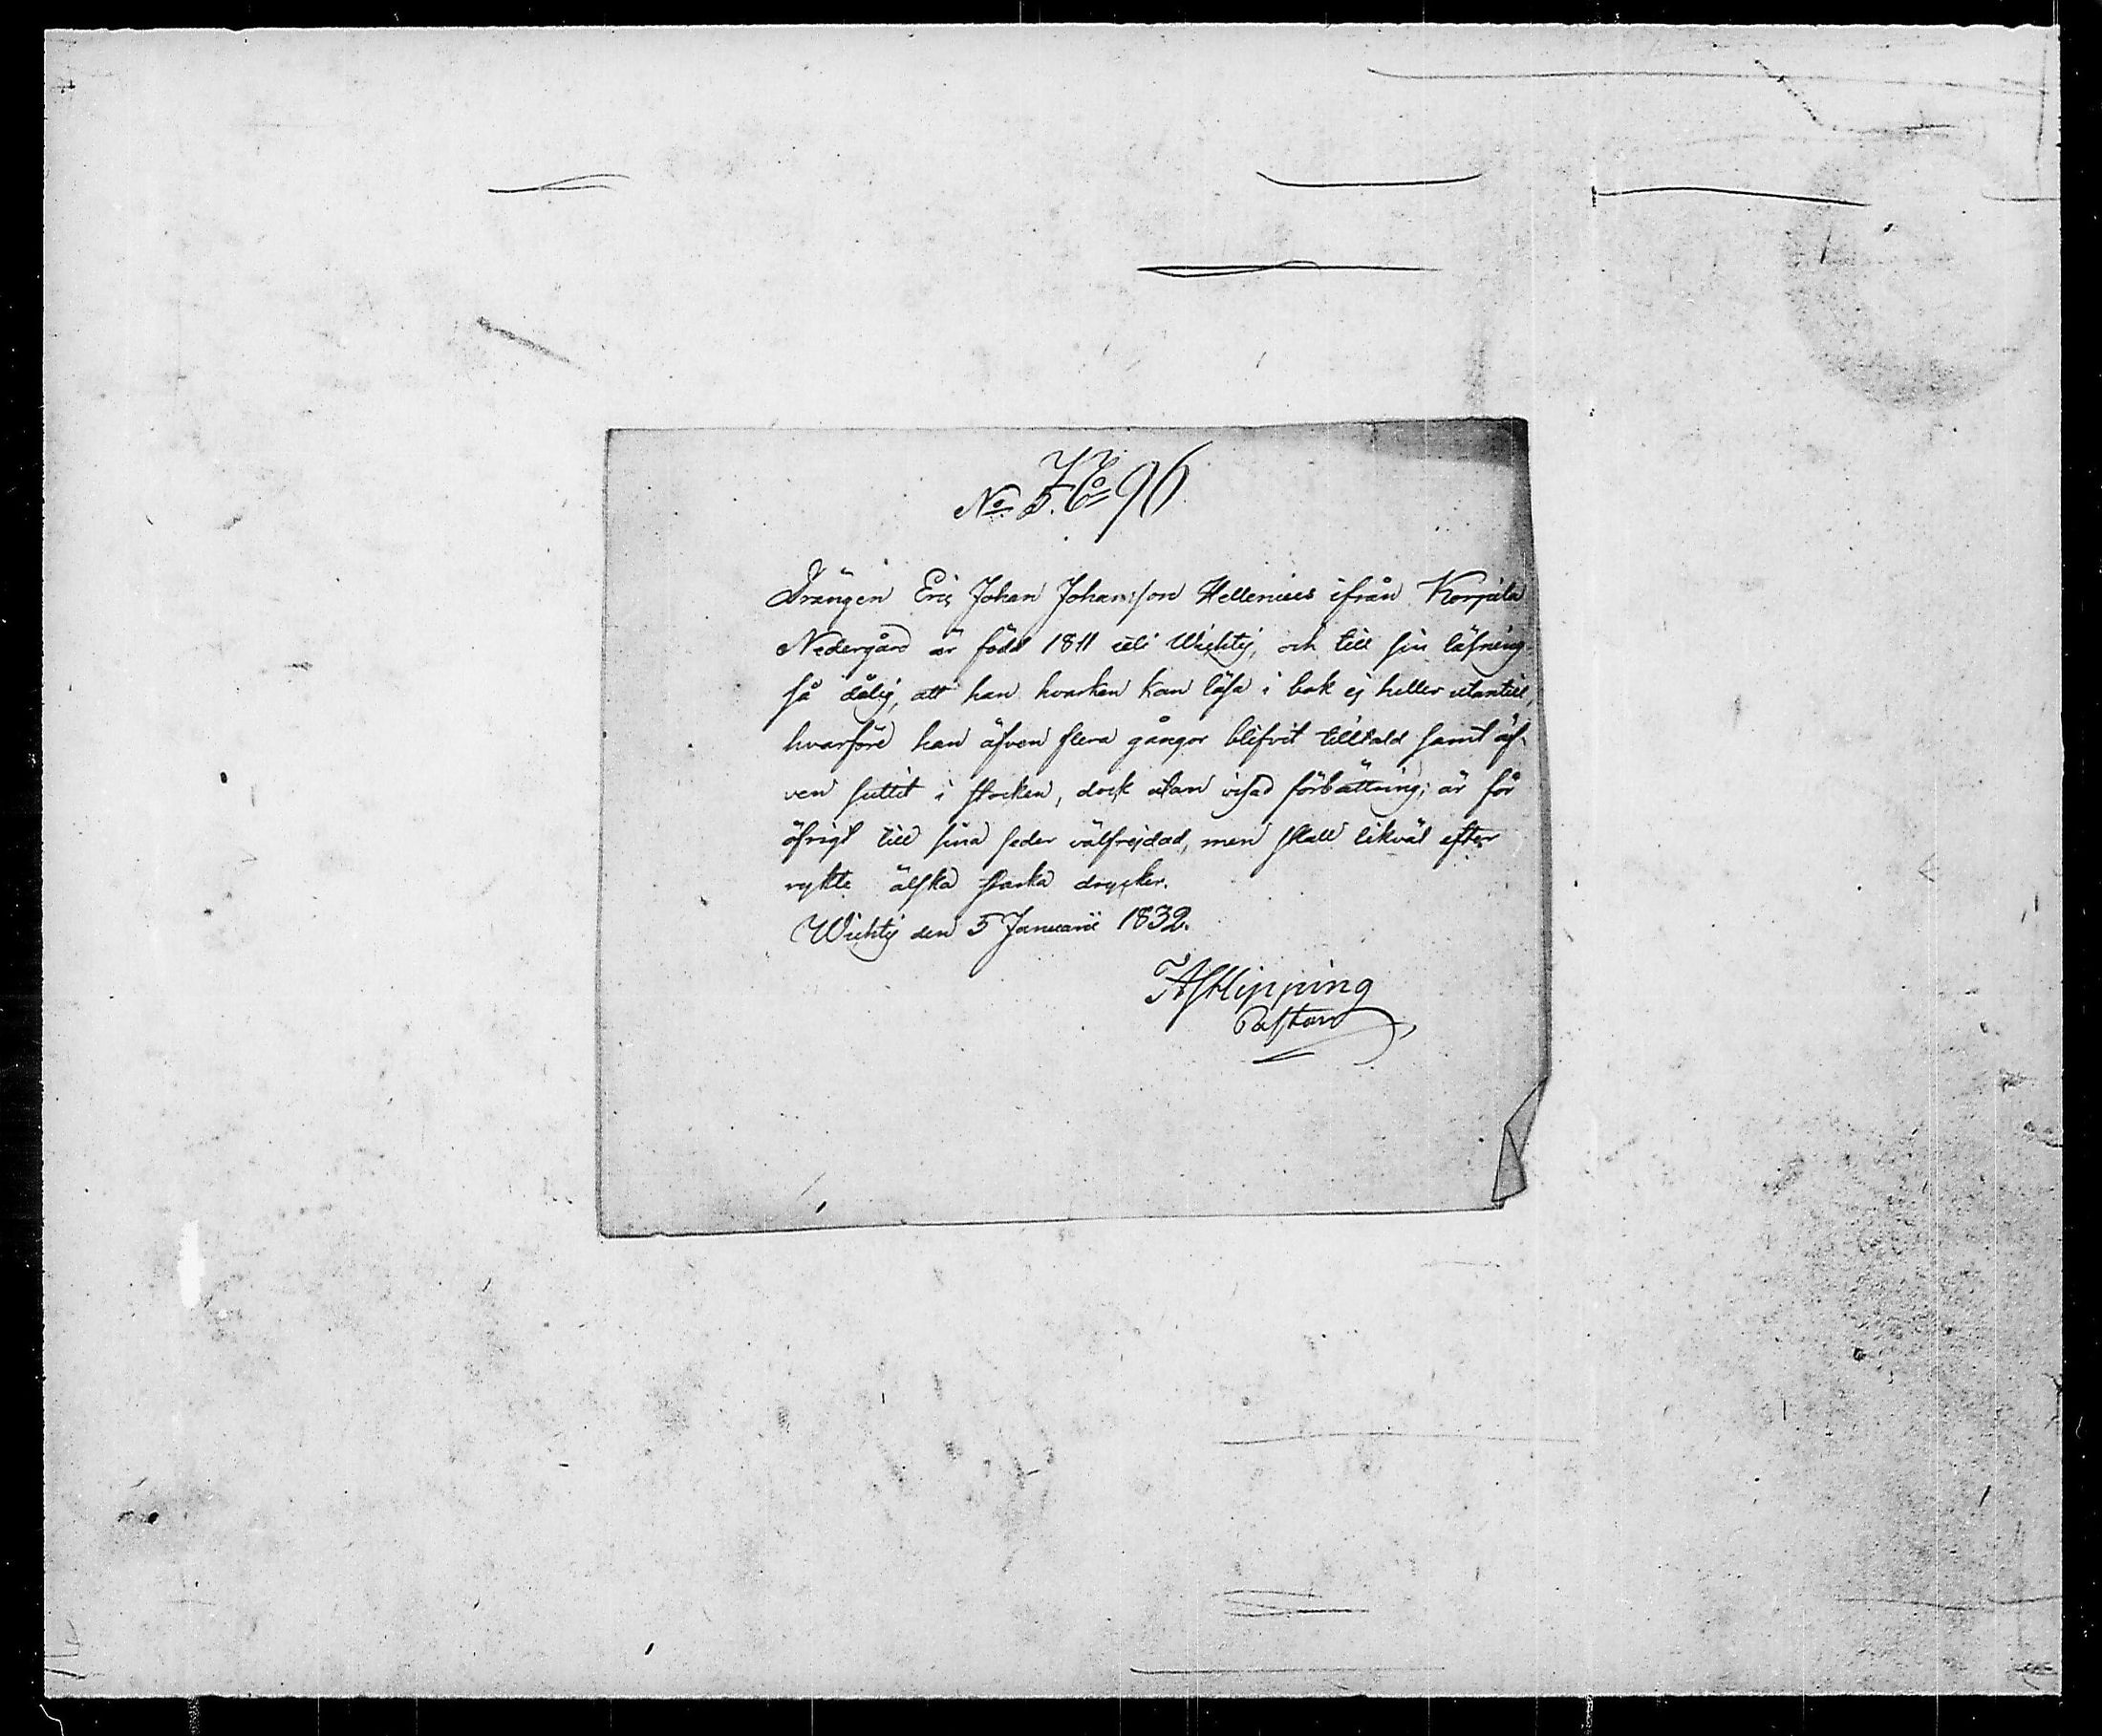 No 5. 96.
Drängen Eric Johan Johansson Hellenius ifrån Korpila
Nedergård är född 1811 uti Wichtis, och till sin läsning
så dålig, att han hvarken kan läsa i bok ej heller utantill,
hvarföre han äfven flera gångor blifvit tilltald samt äf-
ven suttit i stocken, dock utan visad förbättring; är för
öfrigt till sina seder välfrejdad, men skall likväl efter
rykte älska starka drycker.
Wichtis den 5 Januarii 1832.
Hipping
Pastor